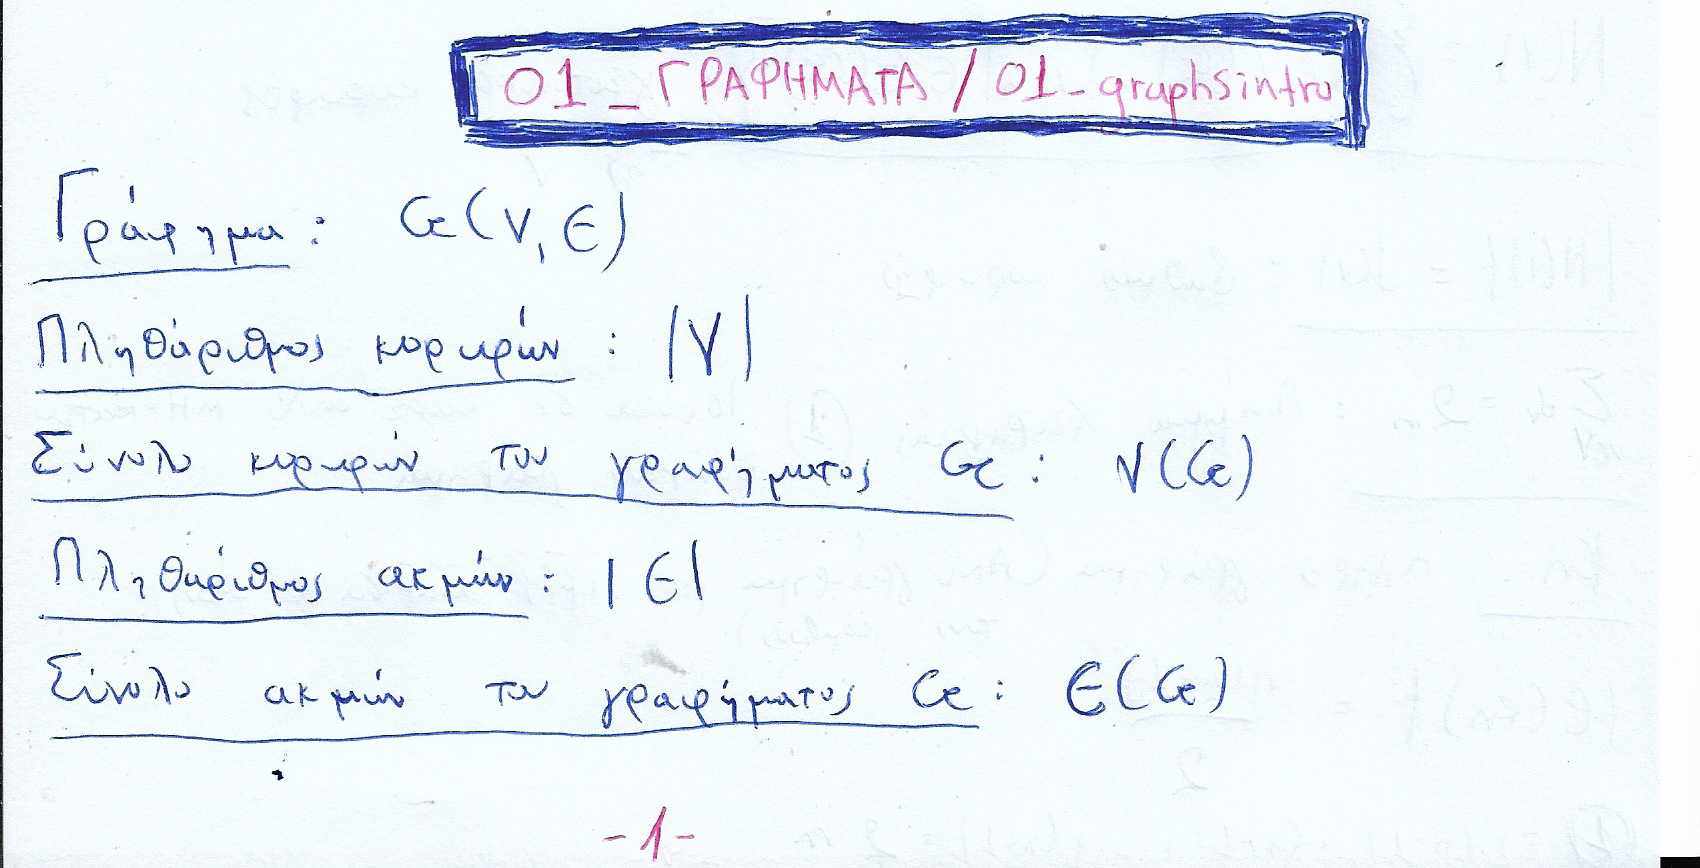 01_ΓΡΑΦΗΜΑΤΑ / 01_graphsintro
Γράφημα: G(V, E)
Πληθάριθμος κορυφών : |V|
Σύνολο κορυφών του γραφήματος G: V(G)
Πληθάριθμος ακμών: |E|
Σύνολο ακμών του γραφήματος G: E(G)
-1-